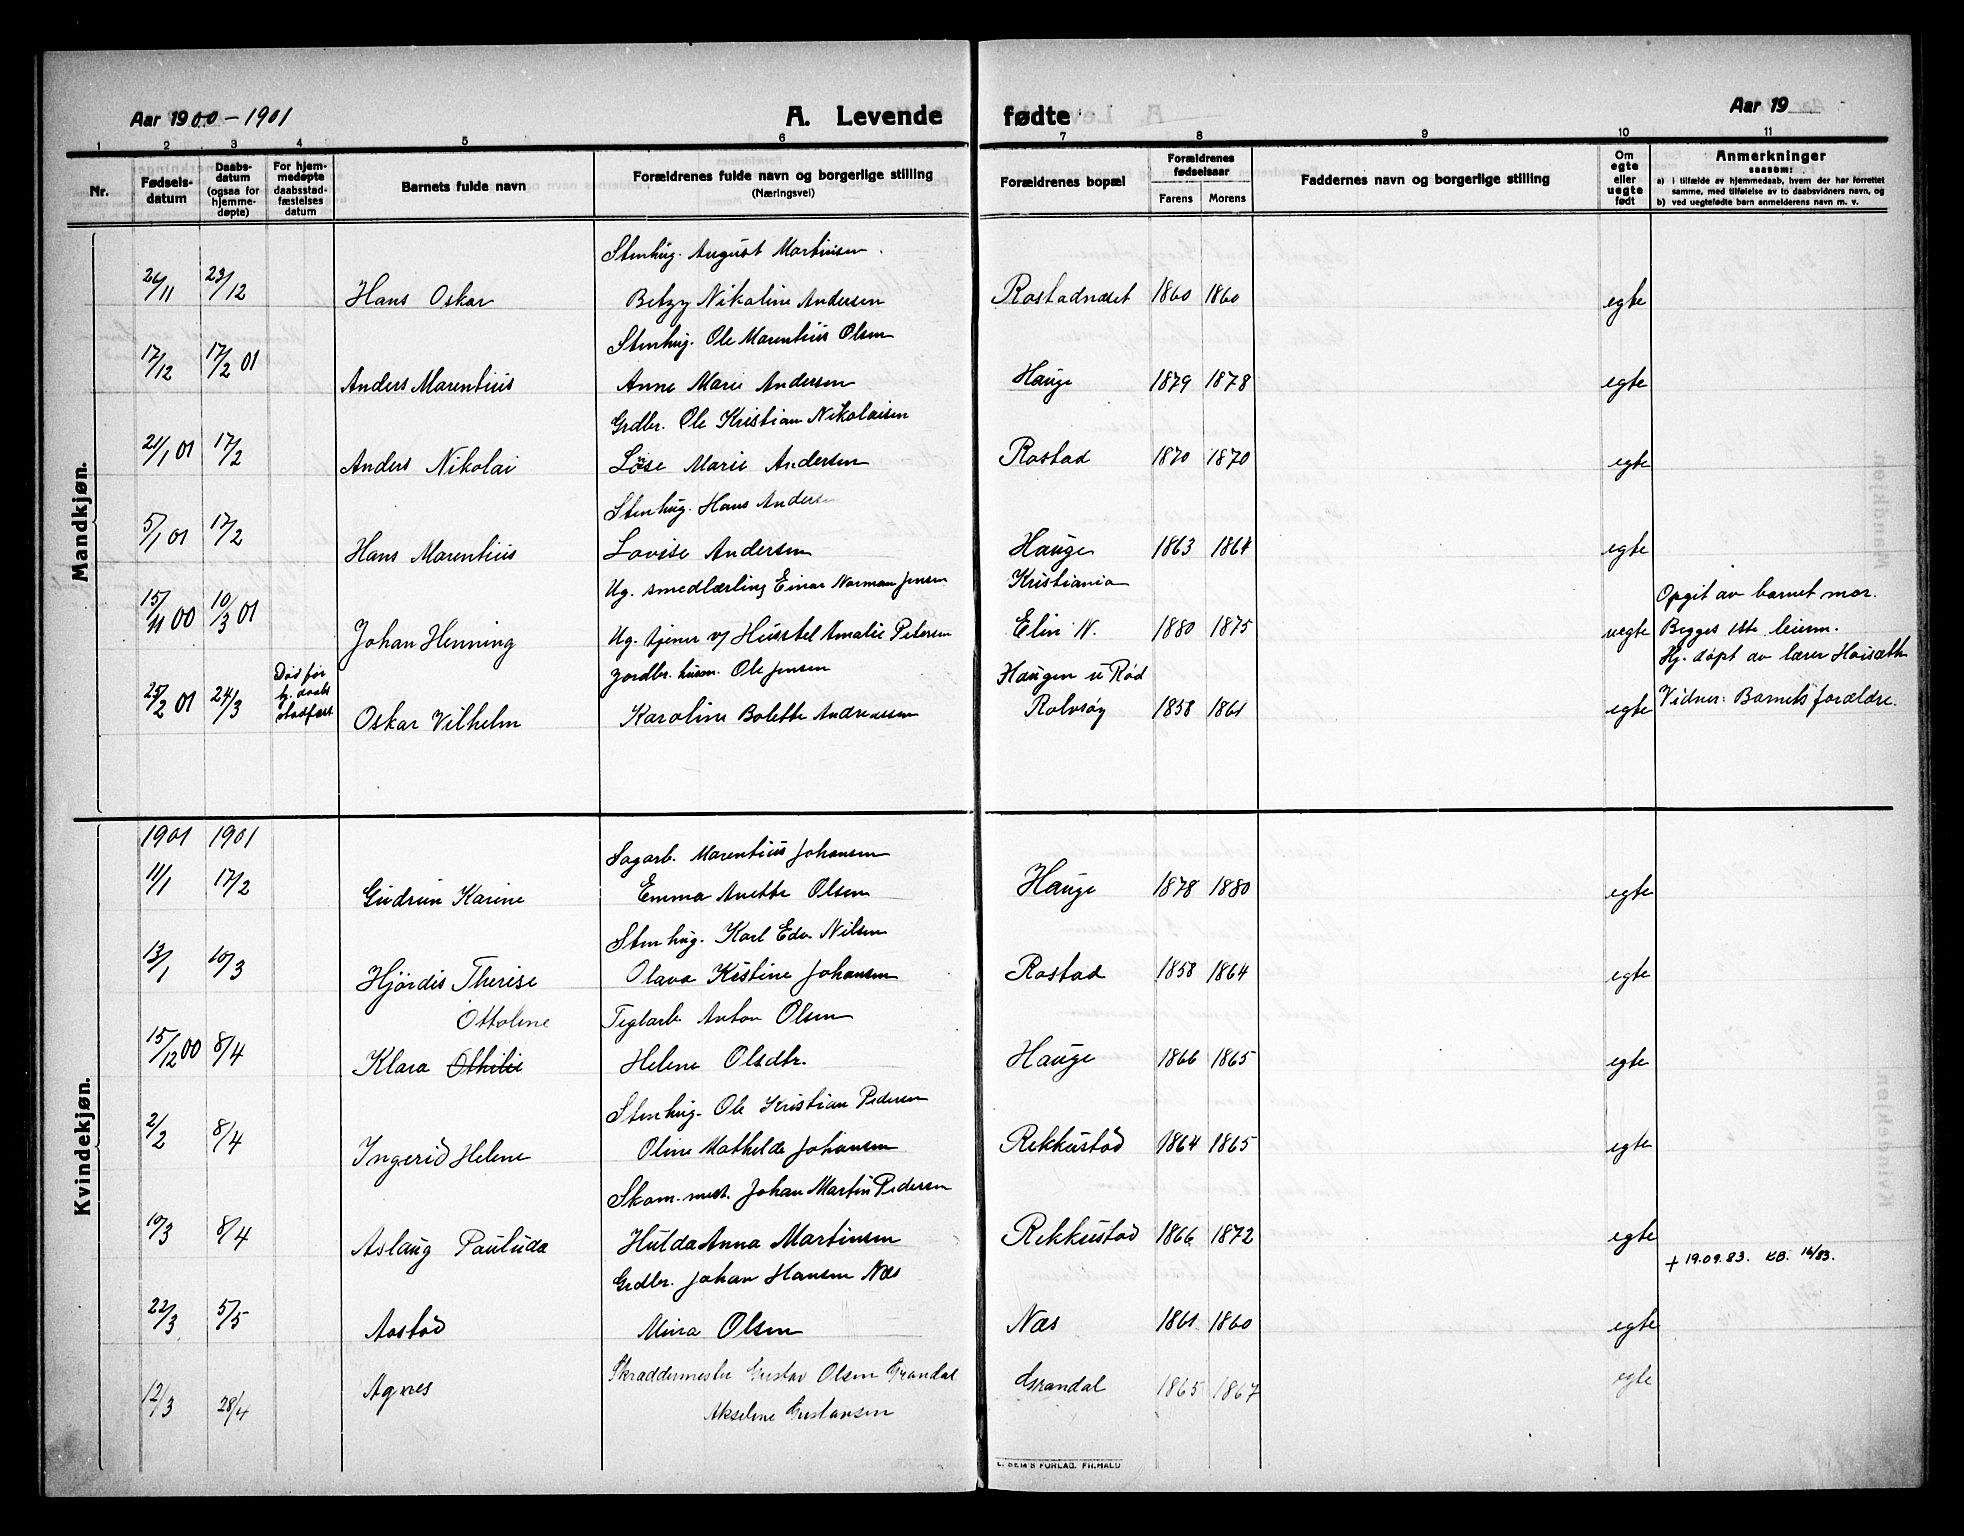 Aar 1900-1901
A. Levende fødte
Aar 19
1 2 3 4 5 6 7 8 9 10 11
Nr.
Fødsels-datum
Daabs-datum (ogsaa for hjemme-døpte)
For hjem-medøpte daabsstad-fæstelses datum
Barnets fulde navn
Forældrenes fulde navn og borgerlige stilling (Næringsvei)
Forældrenes bopæl
Forældrenes fødselsaar
Farens Morens
Faddernes navn og borgerlige stilling
Om egte eller uegte født
Anmerkninger
saasom:
a) i tilfælde av hjemmedaab, hvem der har forrettet samme, med tilføielse av to daabsvidners navn, og
b) ved uegtefødte barn anmelderens navn m. v.
Mandkjøn.
Stenhug. August Martinsen
26/11 23/12 Hans Oskar Betzy Nikoline Andersen Rostadnæset 1860 1860 egte
Stenhug. Ole Marentius Olsen
17/12 17/2 01 Anders Marentius Anne Marie Andersen Hauge 1879 1878 egte
Grdbr. Ole Kristian Nikolaisen
21/1 01 17/2 Anders Nikolai Lovise Marie Andersen Rostad 1870 1870 egte
Stenhug. Hans Andersen
5/1 01 17/2 Hans Marentius Lovise Andersen Hauge 1863 1864 egte
Ug. smedlærling Einar Norman Jensen Kristiania Opgit av barnet mor.
15/11 00 10/3 01 Johan Henning Ug. tjener v/ Husstel Amalie Petersen Elin W. 1880 1875 uegte Begges 1ste leierm.
Død før hj. daabs stadfæst Jordbr. husm. Ole Jensen Haugen u Rød Hj. døpt av lærer Hoisæth
25/2 01 24/3 Oskar Vilhelm Karoline Bolette Andreassen Rolvsøy 1858 1861 egte Vidner: Barnets forældre.
Kvindekjøn.
1901 1901
Sagarb. Marentius Johansen
11/1 17/2 Gudrun Karine Emma Anette Olsen Hauge 1878 1880 egte
Stenhug. Karl Edv Nilsen
13/1 10/3 Hjørdis Therese Olava Kristine Johansen Rostad 1858 1864 egte
Ottoline Teglarb Anton Olsen
15/12 00 8/4 Klara Othilie Helene Olsdtr. Hauge 1866 1865 egte
Stenhug. Ole Kristian Pedersen
2/2 8/4 Ingerid Helene Oline Mathilde Johansen Rekkustad 1864 1865 egte
Skom. mest. Johan Martin Pedersen
10/3 8/4 Aslaug Pauluda Hulda Anna Martinsen Rekkustad 1866 1872 egte
+ 19.09.83. KB. 16/83.
Grdbr. Johan Hansen Næs
22/3 5/5 Aastad Mina Olsen Næs 1861 1860 egte
Skræddermester Gustav Olsen Grandal
12/3 28/4 Agnes Akseline Gustavsen Grandal 1865 1867 egte
E. SEM'S FORLAG, FR.HALD